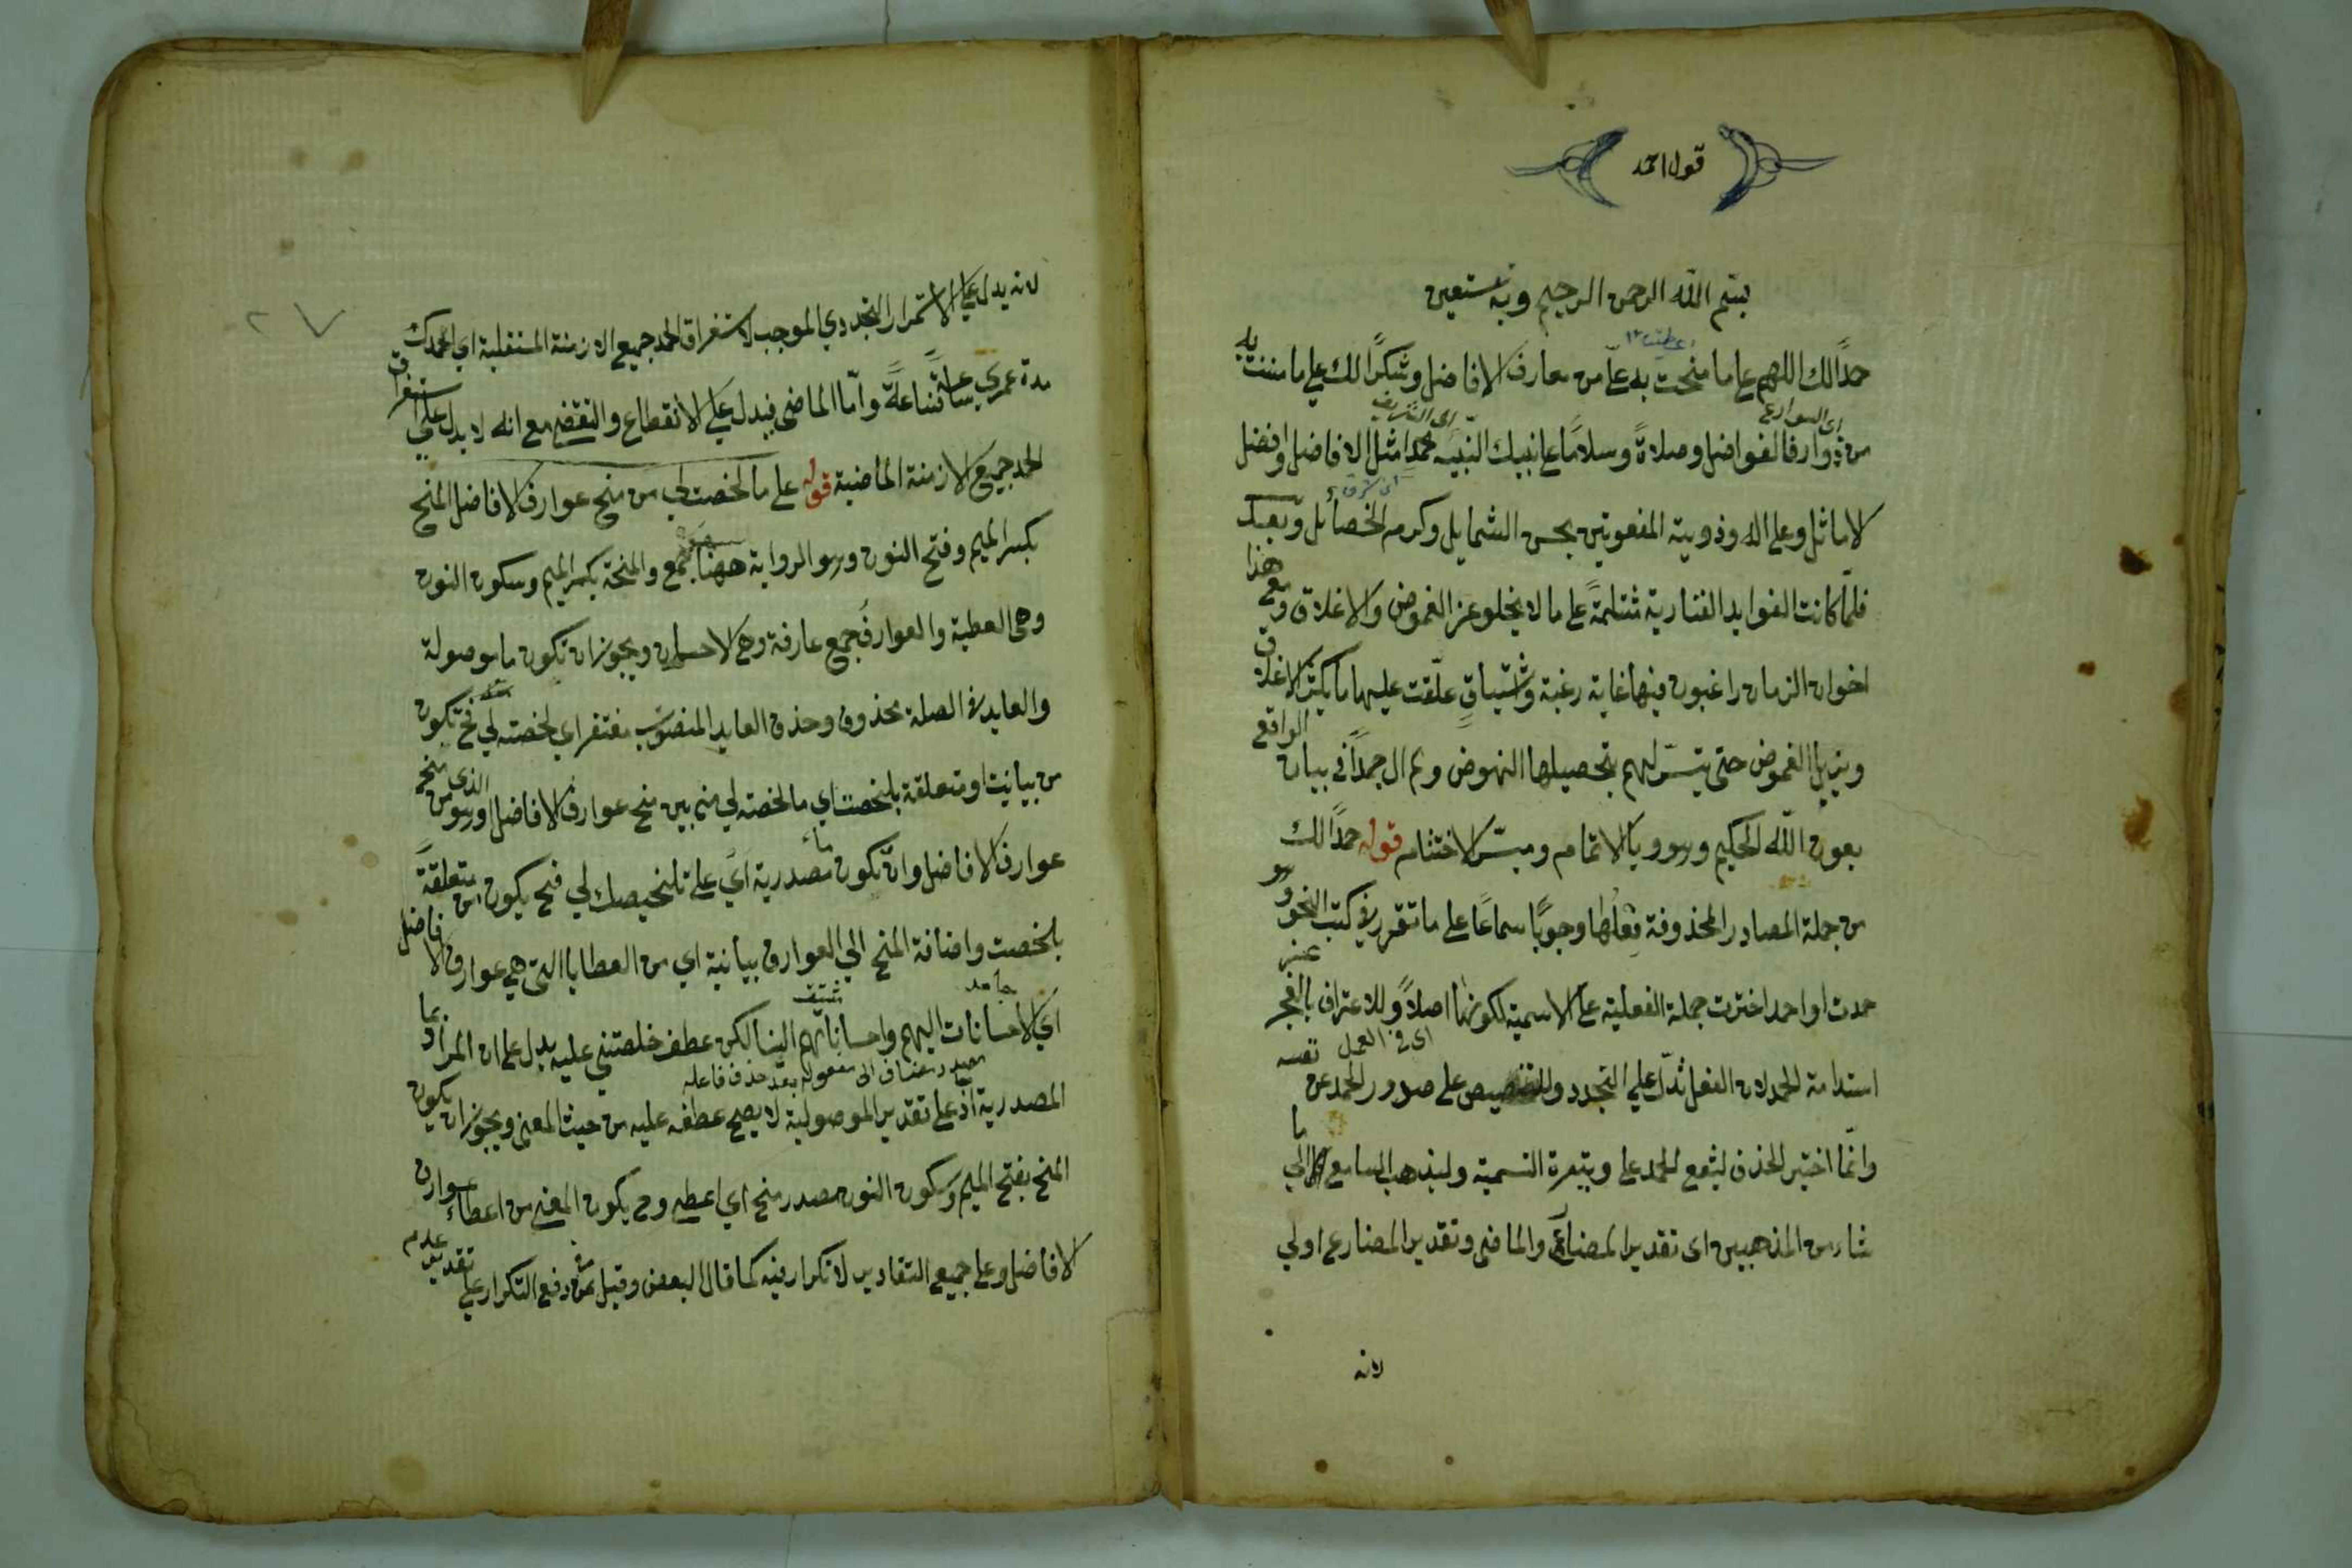 قول احمد
بسم الله الرحمن الرحيم وبه نستعين
حمدًا لك اللهم على ما منحت به علىّ من معارف الافاضل وشكرًا لك على ما مننت به
من ذوارف الفواضل وصلاةً وسلامًا على نبيك النبيه محمد امثل الافاضل وافضل
الاماثل وعلى اله وذويه المنعوتين بحسن الشمايل وكرم الخصائل وبعد
فلمّا كانت الفوايد الفنارية مشتملةً على ما لا يخلو عن الغموض والاغلاق ومع هذا
اخوان الزمان راغبون فيها غاية رغبة واشتياقٍ علّقت عليها ما يكشف الاغلاق
ويزيل الغموض حتى يتيسّر لهم بتحصيلها النهوض ولم ال جهدًا فى بيان الواقع
بعون اللّه الحكيم وهو ولي الاتمام وميسّر الاختتام قوله حمدًا لك
من جملة المصادر المحذوفة فعلها وجوبًا سماعًا على ما تقرر فى كتب النحو وهو
حمدت او احمد اخترت جملة الفعلية على الاسمية لكونها اصلاً وللاعتراف بالعجز عن
استدامة الحمد لان الفعل تدلّ على التجدد وللتنصيص على صدور الحمد عن نفسه
وانّما اختير الحذف ليقع الحمد على وتيرة التسمية وليذهب السامع الى ما
شاء من المذهبين اى تقدير المضارع والماضى وتقدير المضارع اولى
لانه
لانه يدل على الاستمرار التجددي الموجب لاستغراق الحمد جميع الازمنة المستقبلة اي احمدك
مدة عمري ساعةً فساعةً وامّا الماضى فيدل على الانقطاع والتقضى مع انه لا يدل على استغراق
الحمد جميع الازمنة الماضية قوله على ما لخصت لي من منح عوارف الافاضل المنح
بكسر الميم وفتح النون وهو الرواية ههنا جمع والمنحة بكسر الميم وسكون النون
وهى العطية والعوارف جمع عارفة وهى الاحسان ويجوز ان تكون ما موصولة
والعايد فى الصلة محذوف وحذف العايد المنصوب مغتفر اي لخصته لي فح تكون
من بيانية او متعلقة بلخصت اي ما لخصته لي من بين منح عوارف الافاضل الذى هو من منح
عوارف الافاضل وان تكون ما مصدرية اي على تلخيصك لي فح يكون من متعلقةً
بلخصت واضافة المنح الي العوارف بيانية اي من العطايا التى هي عوارف الافاضل
اي الاحسانات اليهم واحساناتهم الينا لكن عطف خلصتنى عليه يدل على ان المراد بما
المصدرية اذ على تقدير الموصولية لا يصح عطفه عليه من حيث المعنى ويجوز ان يكون
المنح بفتح الميم وسكون النون مصدر منح اي اعطى وح يكون المعنى من اعطاء عوارف
الافاضل وعلى جميع التقادير لا تكرار فيه كما قال البعض وقيل دفع التكرار على تقدير عدم